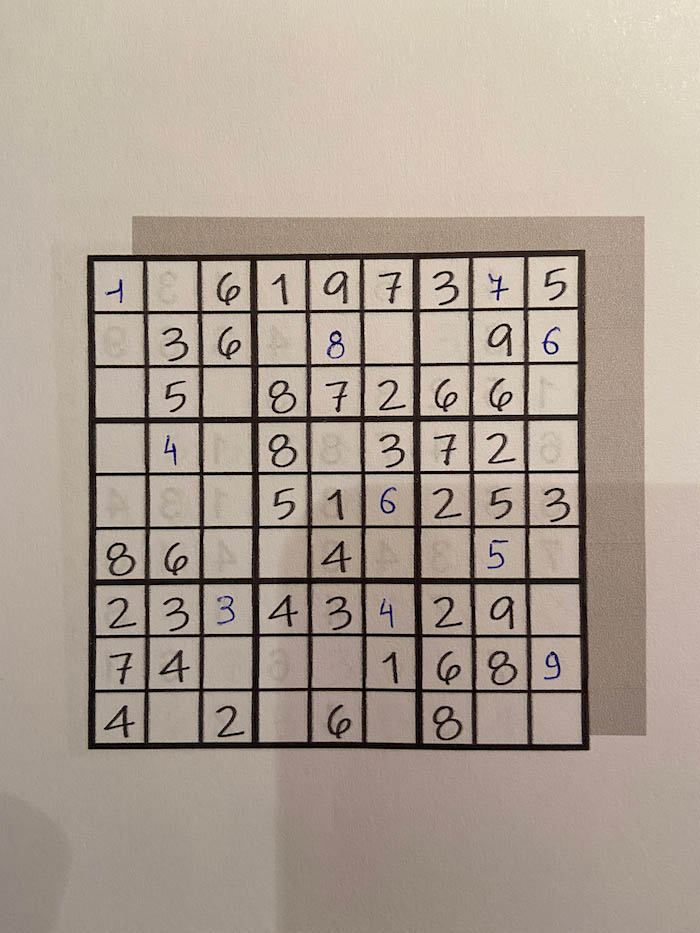 1 6 1 9 7 3 7 5
3 6 8 9 6
5 8 7 2 6 6
4 8 3 7 2
5 1 6 2 5 3
8 6 4 5
2 3 3 4 3 4 2 9
7 4 1 6 8 9
4 2 6 8